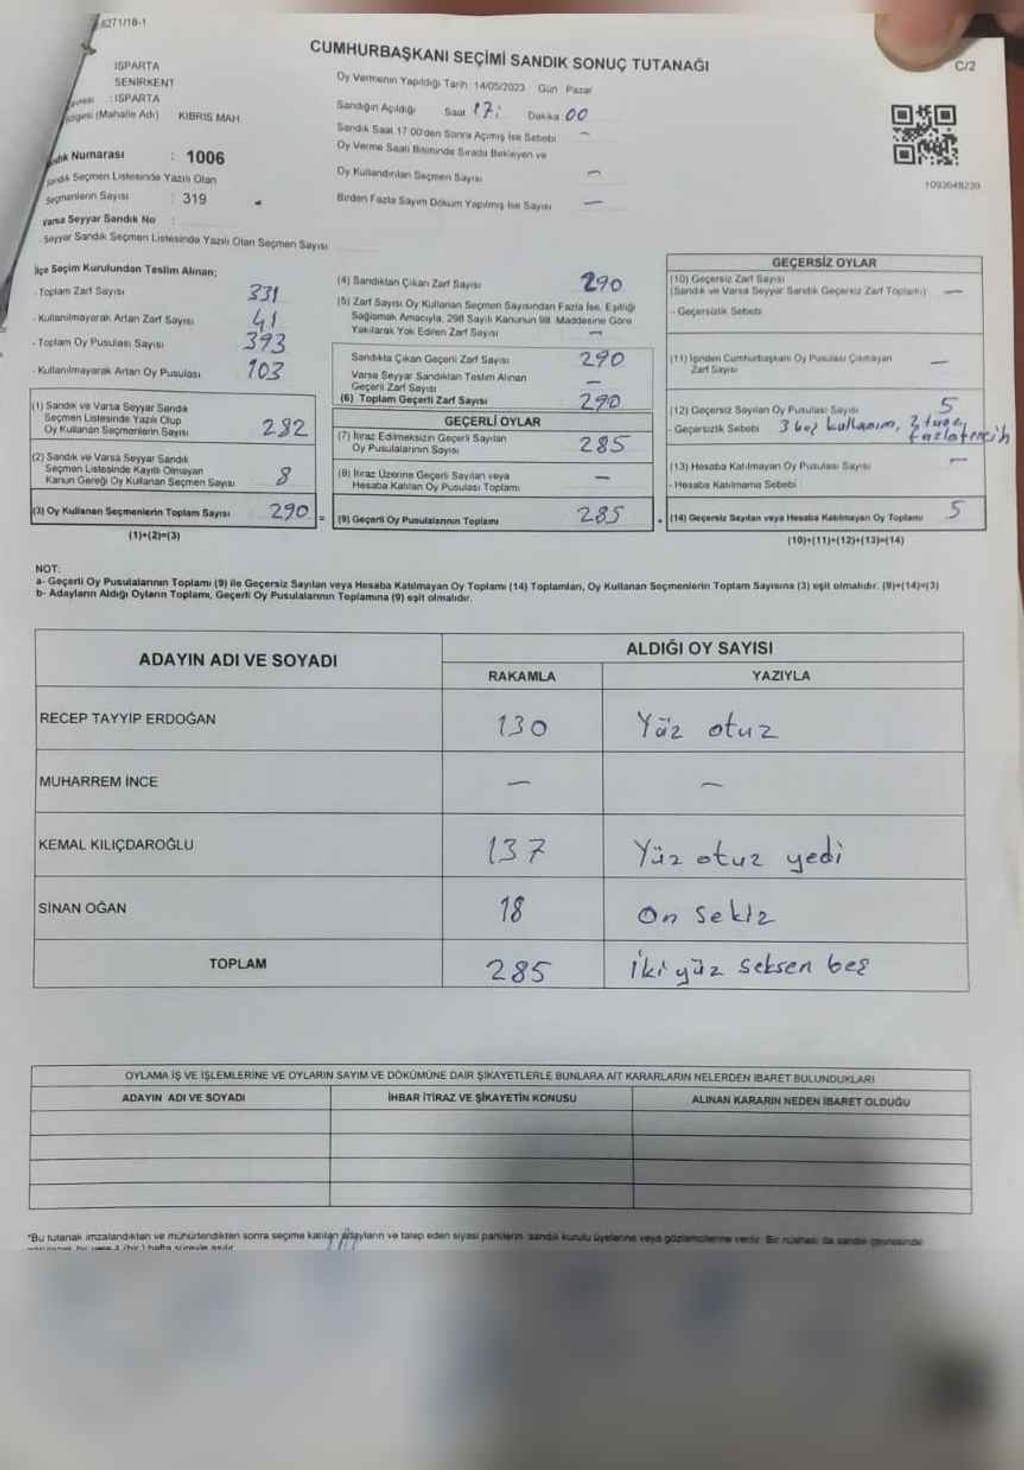 6271/18-1
CUMHURBAŞKANI SEÇİMİ SANDIK SONUÇ TUTANAĞI
C/2
ISPARTA
SENİRKENT
: ISPARTA
(Mahalle Adı) KIBRIS MAH.
Numarası : 1006
Sandık Seçmen Listesinde Yazılı Olan
Seçmenlerin Sayısı : 319
Varsa Seyyar Sandık No :
Seyyar Sandık Seçmen Listesinde Yazılı Olan Seçmen Sayısı
Oy Vermenin Yapıldığı Tarih: 14/05/2023 Gün: Pazar
Sandığın Açıldığı Saat 17: Dakika 00
Sandık Saat 17:00'den Sonra Açılmış İse Sebebi —
Oy Verme Saati Bitiminde Sırada Bekleyen ve
Oy Kullandırılan Seçmen Sayısı —
Birden Fazla Sayım Döküm Yapılmış İse Sayısı —
1093648239
İlçe Seçim Kurulundan Teslim Alınan;
- Toplam Zarf Sayısı 331
- Kullanılmayarak Artan Zarf Sayısı 41
- Toplam Oy Pusulası Sayısı 393
- Kullanılmayarak Artan Oy Pusulası 103
(1) Sandık ve Varsa Seyyar Sandık
Seçmen Listesinde Yazılı Olup
Oy Kullanan Seçmenlerin Sayısı 282
(2) Sandık ve Varsa Seyyar Sandık
Seçmen Listesinde Kayıtlı Olmayan
Kanun Gereği Oy Kullanan Seçmen Sayısı 8
(3) Oy Kullanan Seçmenlerin Toplam Sayısı 290 =
(1)+(2)=(3)
(4) Sandıktan Çıkan Zarf Sayısı 290
(5) Zarf Sayısı Oy Kullanan Seçmen Sayısından Fazla İse, Eşitliği
Sağlamak Amacıyla, 298 Sayılı Kanunun 98. Maddesine Göre
Yakılarak Yok Edilen Zarf Sayısı —
Sandıkta Çıkan Geçerli Zarf Sayısı 290
Varsa Seyyar Sandıktan Teslim Alınan
Geçerli Zarf Sayısı —
(6) Toplam Geçerli Zarf Sayısı 290
GEÇERLİ OYLAR
(7) İtiraz Edilmeksizin Geçerli Sayılan
Oy Pusulalarının Sayısı 285
(8) İtiraz Üzerine Geçerli Sayılan veya
Hesaba Katılan Oy Pusulası Toplamı —
(9) Geçerli Oy Pusulalarının Toplamı 285 +
GEÇERSİZ OYLAR
(10) Geçersiz Zarf Sayısı
(Sandık ve Varsa Seyyar Sandık Geçersiz Zarf Toplamı) —
- Geçersizlik Sebebi
(11) İçinden Cumhurbaşkanı Oy Pusulası Çıkmayan
Zarf Sayısı —
(12) Geçersiz Sayılan Oy Pusulası Sayısı 5
- Geçersizlik Sebebi 3 boş kullanım, 2
fazla tercih
(13) Hesaba Katılmayan Oy Pusulası Sayısı —
- Hesaba Katılmama Sebebi
(14) Geçersiz Sayılan veya Hesaba Katılmayan Oy Toplamı 5
(10)+(11)+(12)+(13)=(14)
NOT:
a- Geçerli Oy Pusulalarının Toplamı (9) ile Geçersiz Sayılan veya Hesaba Katılmayan Oy Toplamı (14) Toplamları, Oy Kullanan Seçmenlerin Toplam Sayısına (3) eşit olmalıdır. (9)+(14)=(3)
b- Adayların Aldığı Oyların Toplamı, Geçerli Oy Pusulalarının Toplamına (9) eşit olmalıdır.
ADAYIN ADI VE SOYADI
ALDIĞI OY SAYISI
RAKAMLA YAZIYLA
RECEP TAYYİP ERDOĞAN 130 Yüz otuz
MUHARREM İNCE — —
KEMAL KILIÇDAROĞLU 137 Yüz otuz yedi
SİNAN OĞAN 18 On sekiz
TOPLAM 285 İki yüz seksen beş
OYLAMA İŞ VE İŞLEMLERİNE VE OYLARIN SAYIM VE DÖKÜMÜNE DAİR ŞİKAYETLERLE BUNLARA AİT KARARLARIN NELERDEN İBARET BULUNDUKLARI
ADAYIN ADI VE SOYADI İHBAR İTİRAZ VE ŞİKAYETİN KONUSU ALINAN KARARIN NEDEN İBARET OLDUĞU
*Bu tutanak imzalandıktan ve mühürlendikten sonra seçime katılan adayların ve talep eden siyasi partilerin sandık kurulu üyelerine veya gözlemcilerine verilir. Bir nüshası da sandık çevresinde